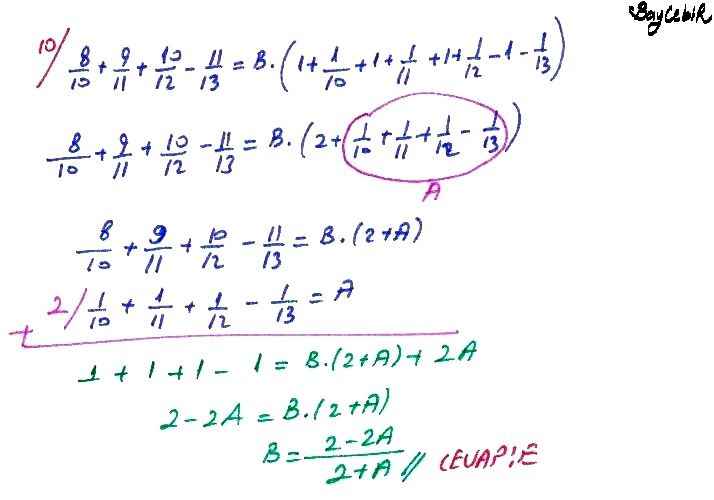 BayCebiR
10/ 8/10 + 9/11 + 10/12 - 11/13 = B.(1+1/10+1+1/11+1+1/12-1-1/13)
8/10 + 9/11 + 10/12 - 11/13 = B.(2+1/10+1/11+1/12-1/13)
A
8/10 + 9/11 + 10/12 - 11/13 = B.(2+A)
2/ 1/10 + 1/11 + 1/12 - 1/13 = A
+
1 + 1 + 1 - 1 = B.(2+A)+2A
2-2A = B.(2+A)
B = 2-2A/2+A // CEVAP:E